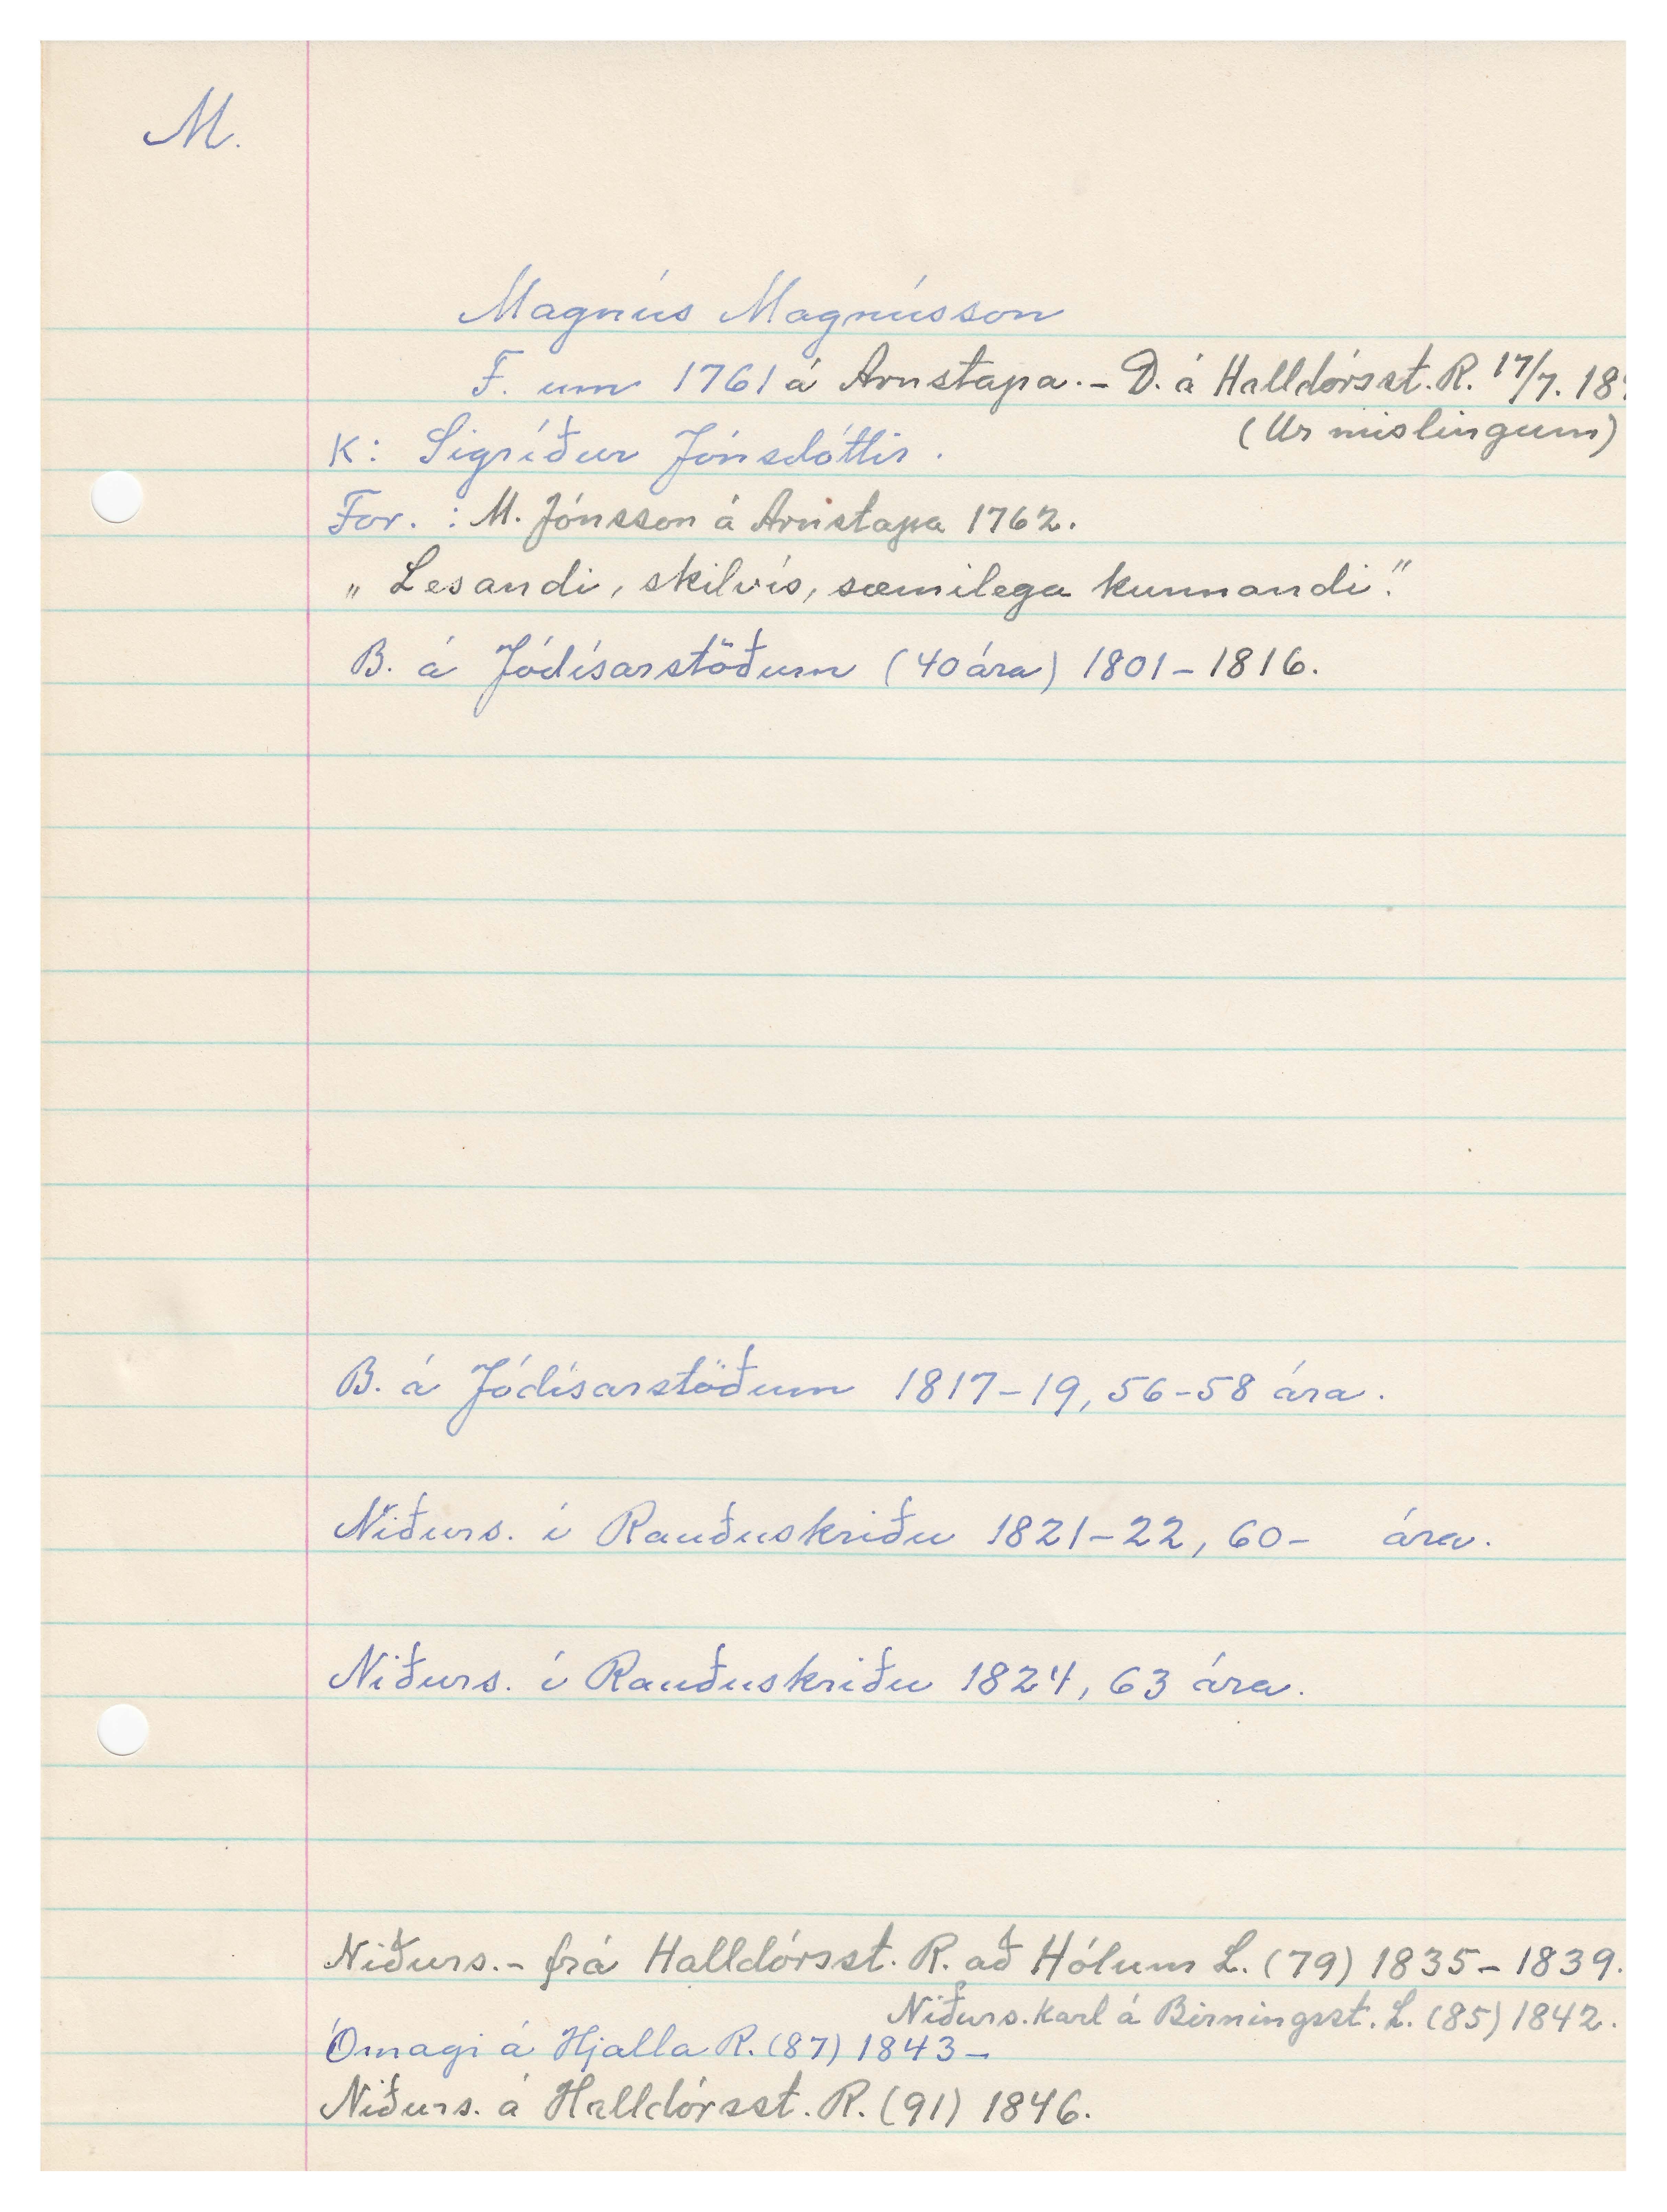 M.
Magnús Magnússon
F. um 1761 á Arnstapa. - D. á Halldórsst. R. 17/7. 18
(Úr mislingum)
K: Sigríður Jónsdóttir.
For. : M. Jónsson á Arnstapa 1762.
„Lesandi, skilvís, sæmilega kunnandi."
B. á Jódísarstöðum (40 ára) 1801 - 1816.
B. á Jódísarstöðum 1817-19, 56-58 ára.
Niðurs. í Rauðuskriðu 1821-22, 60-   ára.
Niðurs. í Rauðuskriðu 1824, 63 ára.
Niðurs. - frá Halldórsst. R. að Hólum L. (79) 1835 - 1839.
Niðurs. karl á Birningsst. L. (85) 1842.
Ómagi á Hjalla R. (87) 1843 -
Niðurs. á Halldórsst. R. (91) 1846.